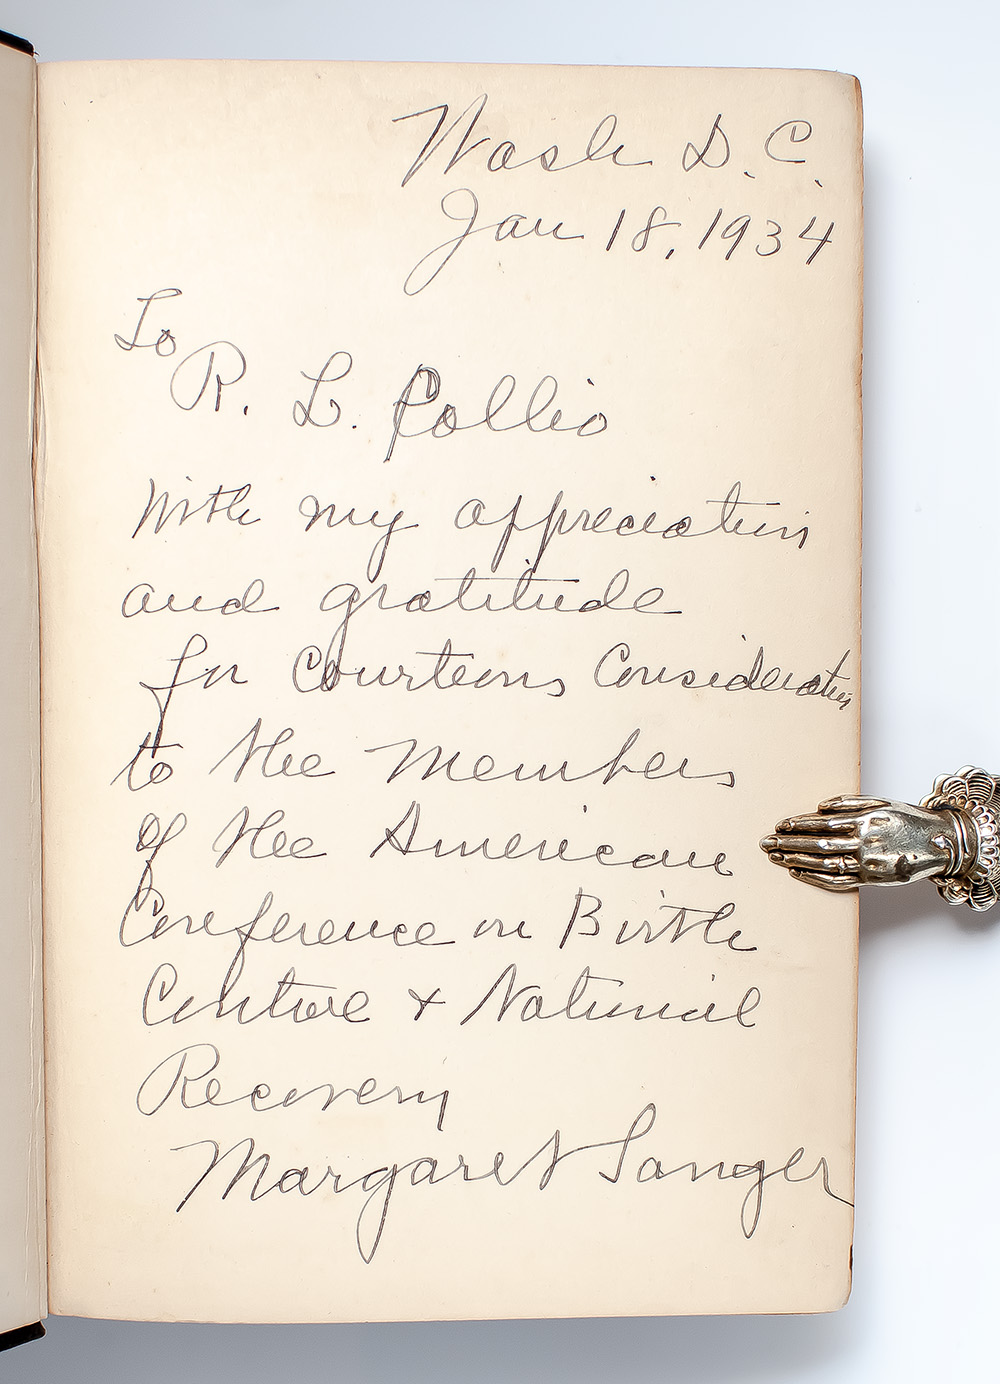 Wash D.C.
Jan 18, 1934
To
R. L. Pollio
With my appreciation
and gratitude
for Courteous Consideration
to the Members
of the American
Conference on Birth
Control + National
Recovery
Margaret Sanger